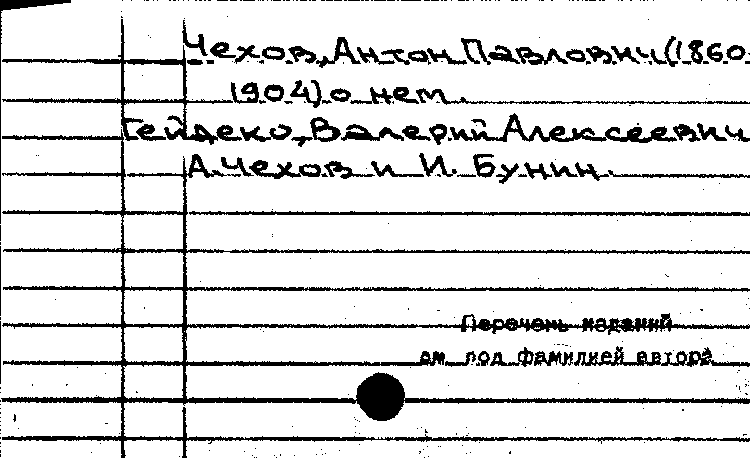 Чехов, Антон Павлович (1860-
1904) о нем.
Гейдеко, Валерий Алексеевич
А. Чехов и И. Бунин.
Перечень изданий
см. под фамилией автора